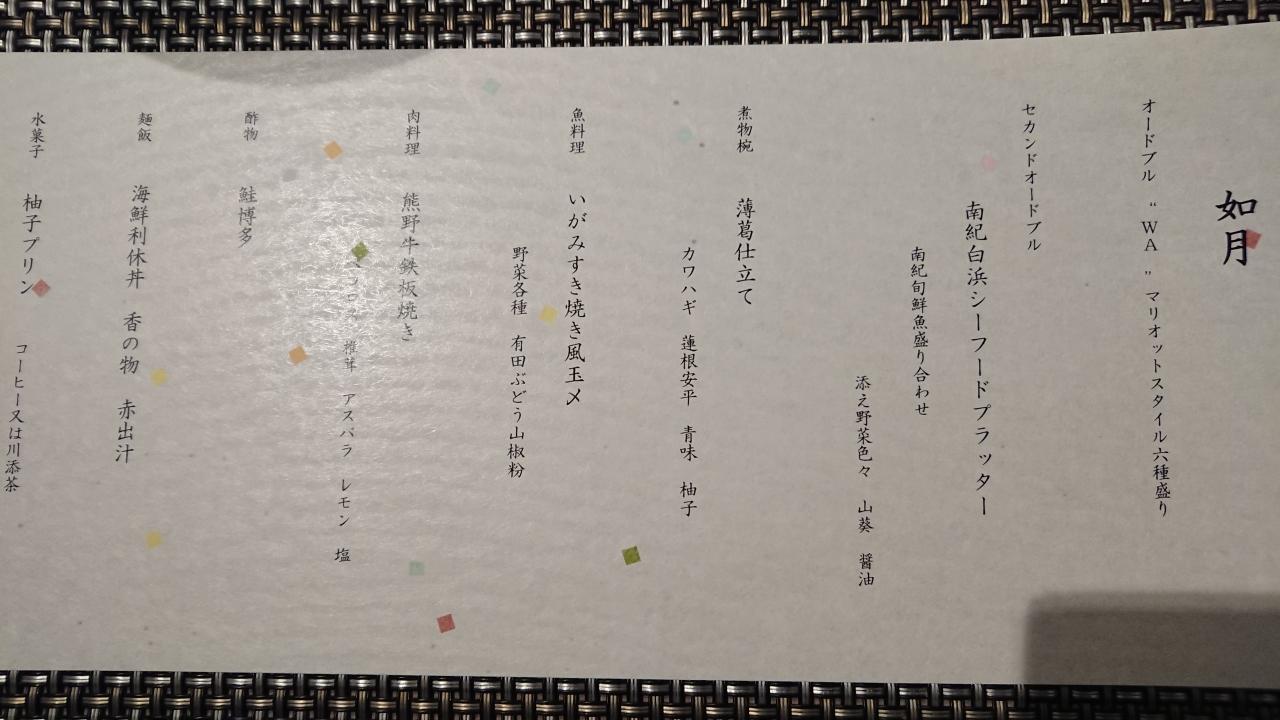 如月
オードブル “WA” マリオットスタイル六種盛り
セカンドオードブル
南紀白浜シーフードプラッター
南紀旬鮮魚盛り合わせ
添え野菜色々 山葵 醤油
煮物椀 薄葛仕立て
カワハギ 蓮根安平 青味 柚子
魚料理 いがみすき焼き風玉〆
野菜各種 有田ぶどう山椒粉
肉料理 熊野牛鉄板焼き
椎茸 アスパラ レモン 塩
酢物 鮭博多
麺飯 海鮮利休丼 香の物 赤出汁
水菓子 柚子プリン
コーヒー又は川添茶